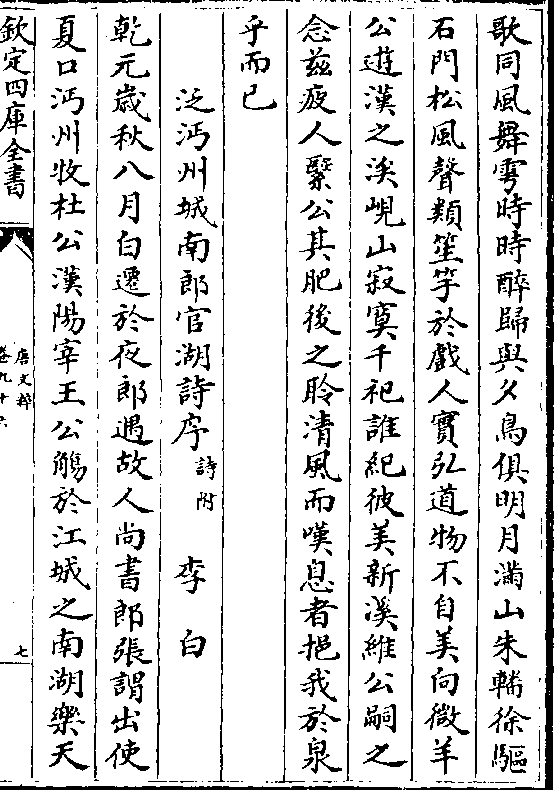 歌同風舞雩時時醉歸與夕鳥俱明月滿山朱轓徐驅
石門松風聲類笙竽於戲人實弘道物不自美向微羊
公遊漢之溪峴山寂寞千祀誰紀彼美新溪維公嗣之
念茲疲人繄公其肥後之聆清風而嘆息者挹我於泉
乎而已
泛沔州城南郎官湖詩序 詩附 李白
乾元歲秋八月白遷於夜郎遇故人尚書郎張謂出使
夏口沔州牧杜公漢陽宰王公觴於江城之南湖樂天
欽定四庫全書
唐文粹
卷九十六
七